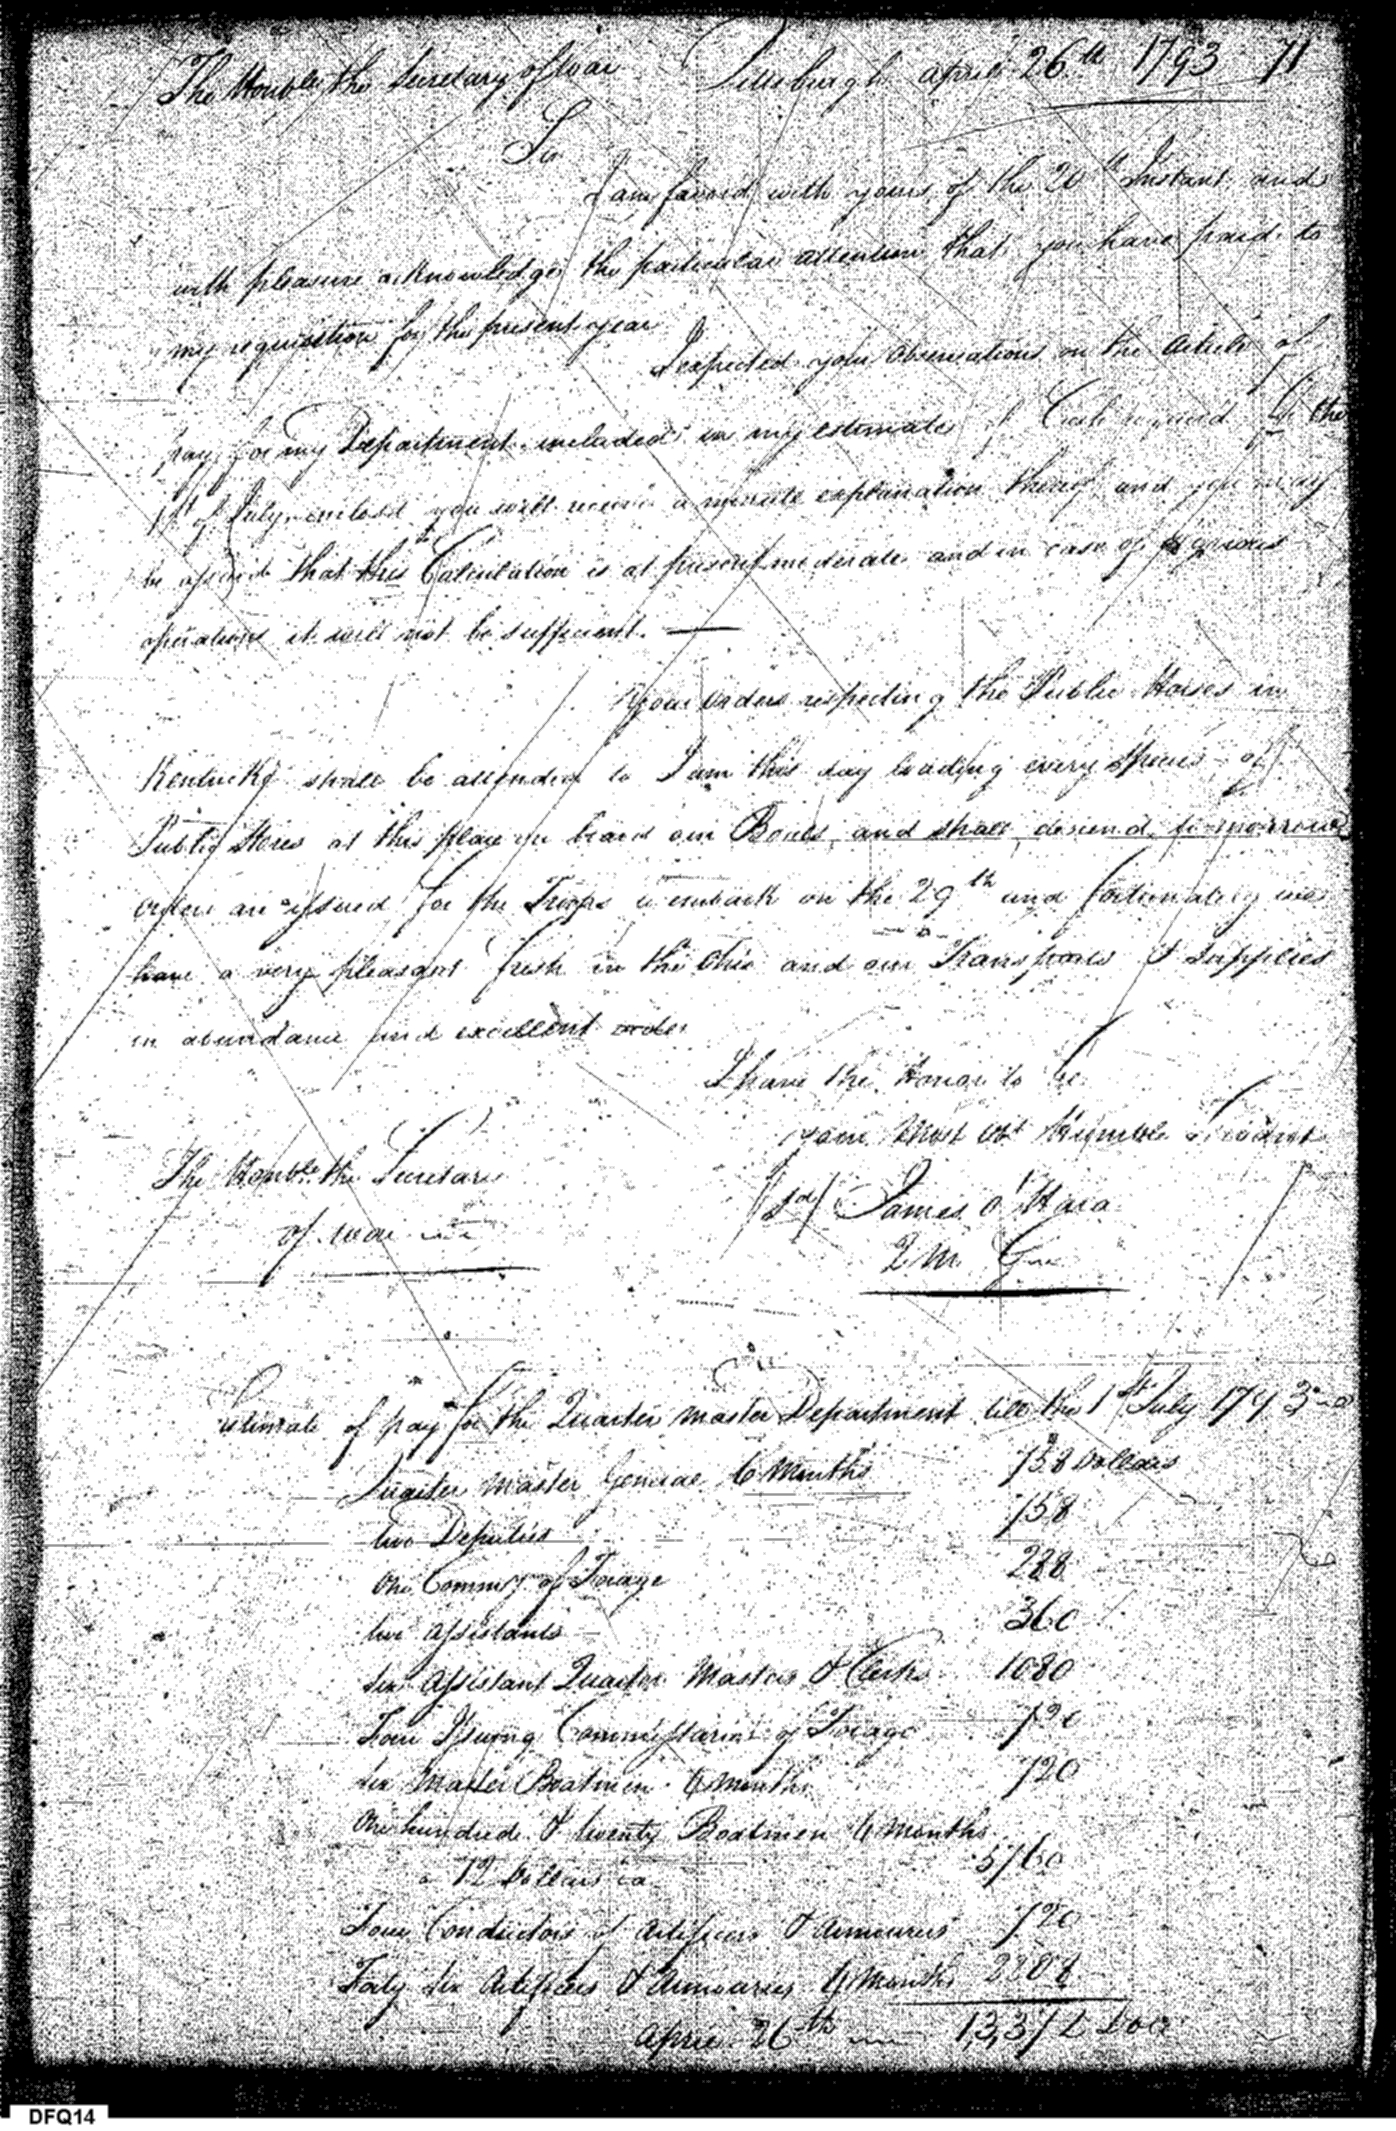 The Honble the Secretary of War Pittsburgh april 26th 1793 71
Sir
I am favord with yours of the 20th Instant and
with pleasure acknowledge the particular attention that you have paid to
my requisition for the present year
I expected your observations on the article of
pay for my Department included in my estimate of Cash required to the
1st of July enclosd you will receive a minute explanation thereof and you may
be assurd that this Calculation is at present moderate and in case of
operations it will not be sufficient. —
Your orders respecting the Public Horses in
Kentucky shall be attended to I am this day loading every species of
Public Stores at this place on board our Boats, and shall descend to-morrow
orders are issued for the Troops to embark on the 29th and fortunately we
have a very pleasant fresh in the Ohio and our Transports & supplies
in abundance and excellent order
I have the Honor to be
your Most obt Humble Servant
The Honble the Secretary (Sd) James O'Hara
of war Q M Gen
Estimate of pay for the Quarter master Department till the 1st July 1793
Quarter Master General 6 Months 738 Dollars
two Deputies 758
One Commisy of Forage 288
two assistants 360
six Assistant Quarter Masters & Clerks 1080
Four Issuing Commissaries of Forage 720
six Master Boatmen 6 months 720
One hundred & twenty Boatmen 6 Months
a 12 Dollars ea 5760
Four Conductors of artificers & armourers 720
Forty six Artificers & Armouries 6 Months 2208
April 26th 13,372 Dolr
DFQ14